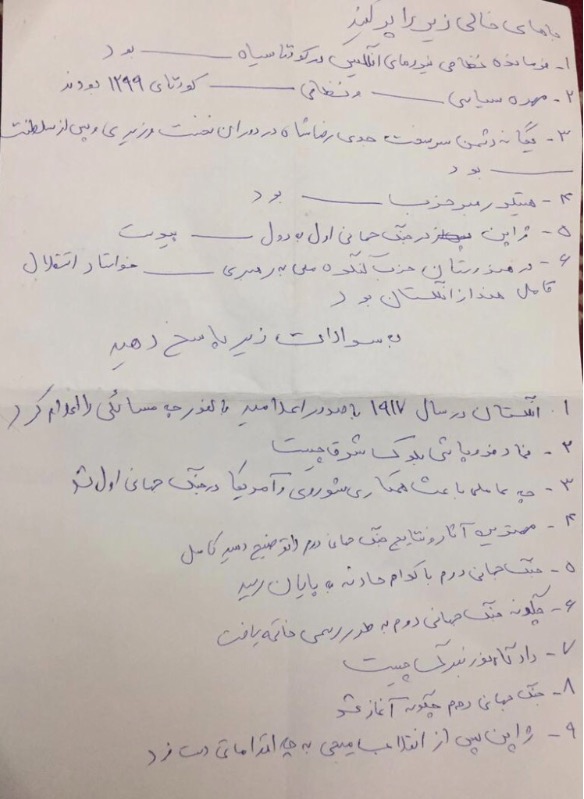 جاهای خالی زیر را پر کنید
۱- فرمانده نظامی نیروهای انگلیس در کودتا سیاه ــــــ بود
۲- مهره سیاسی ــــــ و نظامی ــــــ کودتای ۱۲۹۹ بودند
۳- یگانه دشمن سرسخت جدی رضا شاه در دوران نخست وزیری و پس از سلطنت
ــــــ بود
۴- هیتلر رهبر حزب ــــــ بود
۵- ژاپن در جنگ جهانی اول به دول ــــــ پیوست
۶- در هندوستان حزب کنگره ملی به رهبری ــــــ خواستار استقلال
کامل هند از انگلستان بود
به سوالات زیر پاسخ دهید
۱. انگلستان در سال ۱۹۱۷ با صدور اعلامیه بالفور چه مسائلی را اعلام کرد
۲- نماد فروپاشی بلوک شرق چیست
۳- چه عاملی باعث همکاری شوروی و آمریکا در جنگ جهانی اول شد
۴- مهمترین آثار و نتایج جنگ جهانی دوم را توضیح دهید کامل
۵- جنگ جهانی دوم با کدام حادثه به پایان رسید
۶- چگونه جنگ جهانی دوم به طور رسمی خاتمه یافت
۷- دادگاه نورنبرگ چیست
۸- جنگ جهانی دوم چگونه آغاز شد
۹- ژاپن پس از انقلاب میجی به چه اقداماتی دست زد